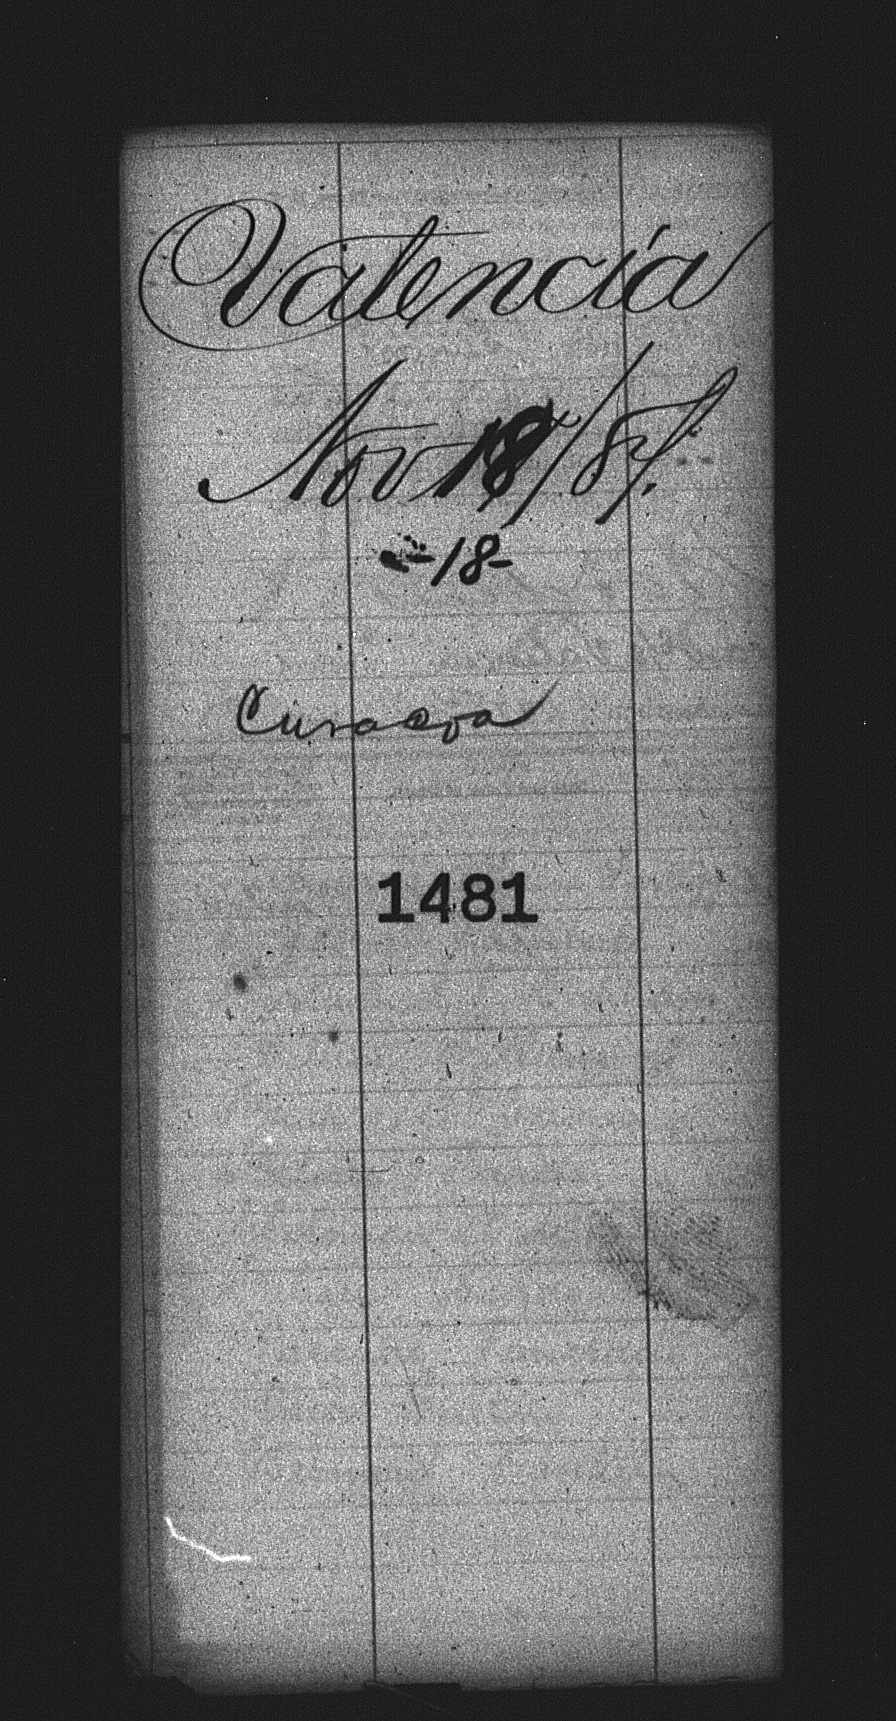 Valencia
Nov 18/87.
-18-
Curacoa
1481